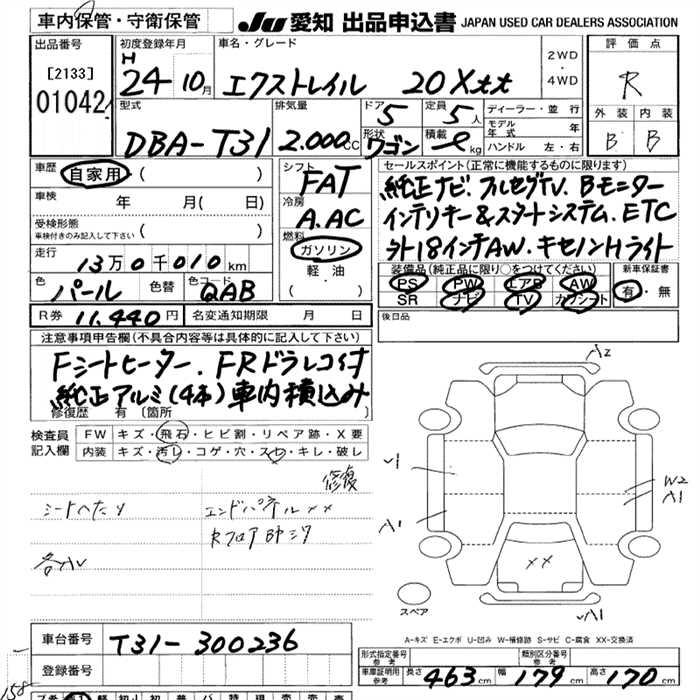 車内保管・守衛保管
JU 愛知 出品申込書 JAPAN USED CAR DEALERS ASSOCIATION
出品番号
[2133]
01042
初度登録年月
H
24 10月
車名・グレード
エクストレイル 20Xtt
2WD
・
4WD
評価点
R
外装 内装
B B
型式
DBA-T31
排気量
2.000cc
ドア 5
形状
ワゴン
定員 5人
積載
kg
ディーラー・並行
モデル年式 年
ハンドル 左・右
車歴
自家用 ( )
車検
年 月( 日)
受検形態
車検付きのみ記入して下さい ( )
走行
13万0千010km
色
パール
色替
色コード
QAB
R券 11.440円
名変通知期限 月 日
シフト
FAT
冷房
A.AC
燃料
ガソリン
軽油
( )
セールスポイント(正常に機能するものに限ります)
純正ナビ.フルセグTV.Bモニター
インテリキー&スタートシステム.ETC
外18インチAW.キセノンHライト
装備品(純正品に限り○をつけてください)
PS PW エアB AW
SR ナビ TV カワシート
新車保証書
有・無
後日品
注意事項申告欄(不具合内容等は具体的に記入して下さい)
Fシートヒーター.FRドラレコ付
純正アルミ(4本)車内積込み
修復歴 有 〔箇所 〕
検査員
記入欄
FW キズ・飛石・ヒビ割・リペア跡・X要
内装 キズ・汚レ・コゲ・穴・スレ・キレ・破レ
修復
シートヘたり
エンドパネルxx
各小レ
A2
W2
A1
A1
xx
A1
スペア
A-キズ E-エクボ U-凹み W-補修跡 S-サビ C-腐食 XX-交換済
車台番号
T31-300236
登録番号
型式指定番号
参考
類別区分番号
参考
車庫証明用
参考
長さ 463cm 幅 179cm 高さ 170cm
158